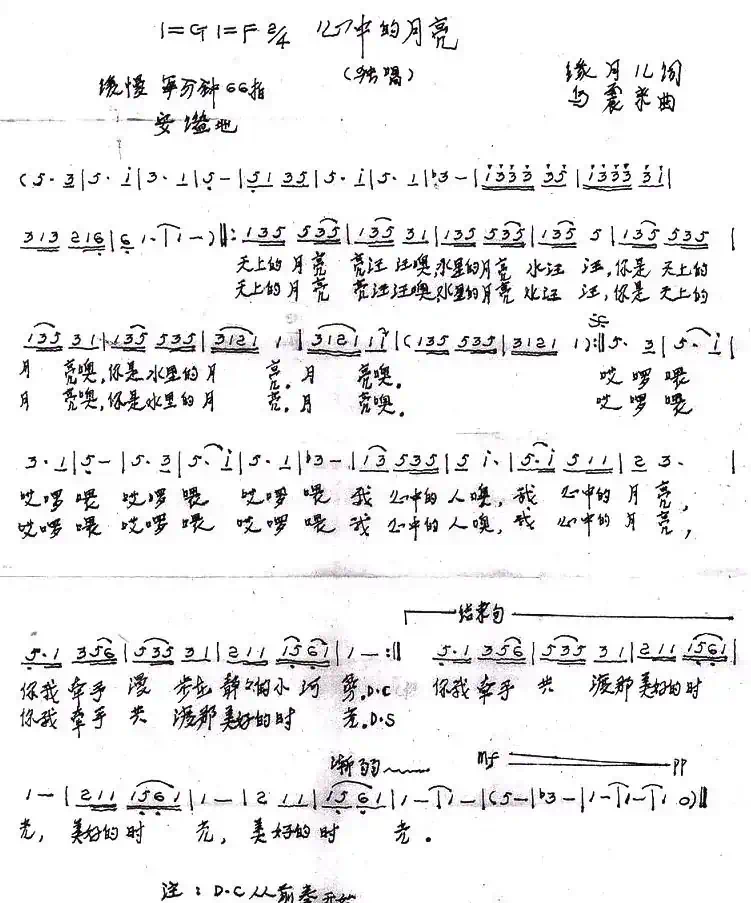 1=G 1=F 2/4 心中的月亮
(独唱)
缓慢 每分钟66拍
安谧地
缘月儿词
乌震来曲
(5· 3|5· i|3· 1|5 -|51 35|5· i|5· 1|♭3 -|i333 35|i333 3i|
313 216|6 1·|1 -)‖:135 535|135 31|135 535|135 5|135 535|
天上的月亮 亮汪汪噢,水里的月亮 水汪汪,你是天上的
天上的月亮 亮汪汪噢,水里的月亮 水汪汪,你是天上的
135 31|135 535|3121 1|3121 1i|(135 535|3121 1):‖5· 3|5· i|
月 亮噢,你是水里的月 亮。月 亮噢。 哎啰喂
月 亮噢,你是水里的月 亮。月 亮噢。 哎啰喂
3· 1|5 -|5· 3|5· i|5· 1|♭3 -|13 535|5 i·|5·i 511|2 3·|
哎啰喂 哎啰喂 哎啰喂 我心中的人噢,我 心中的月亮,
哎啰喂 哎啰喂 哎啰喂 我心中的人噢,我 心中的月亮,
结束句
5·1 356|535 31|211 1561|1 -:‖ 5·1 356|535 31|211 1561|
你我牵手 漫 步在静静的小河 旁。D.C 你我牵手 共 渡那美好的时
你我牵手 共 渡那美好的时 光。D.S
渐弱 mf pp
1 -|211 1561|1 -|2 11|15 61|1 -|1 -|(5 -|♭3 -|1 -|1 -|1 0)‖
光, 美好的时 光, 美好的时 光。
注:D.C从前奏开始